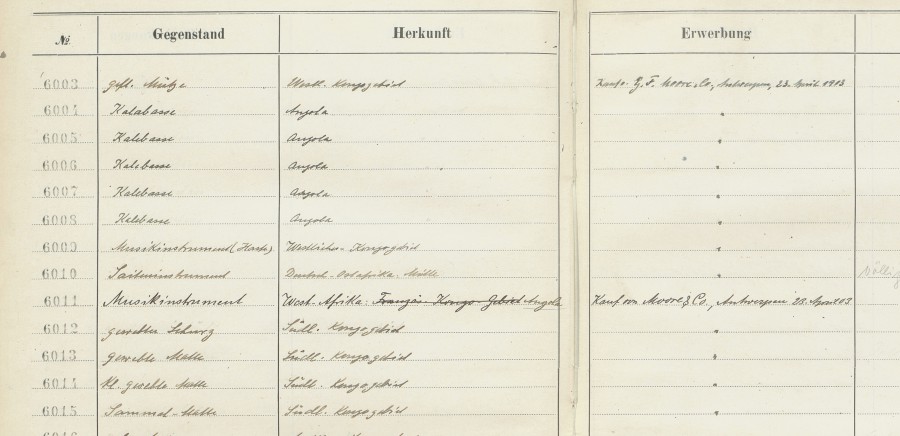 № Gegenstand Herkunft Erwerbung
6003 gefl. Mütze Westl. Kongogebiet Kaufo. F. Moore, Co, Antwerpen, 23. April 1903
6004 Kalabasse Angola "
6005 Kalebasse Angola "
6006 Kalebasse Angola "
6007 Kalebasse Angola "
6008 Kalebasse Angola "
6009 Musikinstrument (Harfe) Westliches Kongogebiet "
6010 Saiteninstrument Deutsch-Ostafrika. "
6011 Musikinstrument West-Afrika: Französ. Kongo-Gebiet Angola Kauf von Moore & Co., Antwerpen 23. April 03
6012 gewebter Schurz Südl. Kongogebiet "
6013 gewebte Matte Südl. Kongogebiet "
6014 kl. gewebte Matte Südl. Kongogebiet "
6015 Sammel-Matte Südl. Kongogebiet "